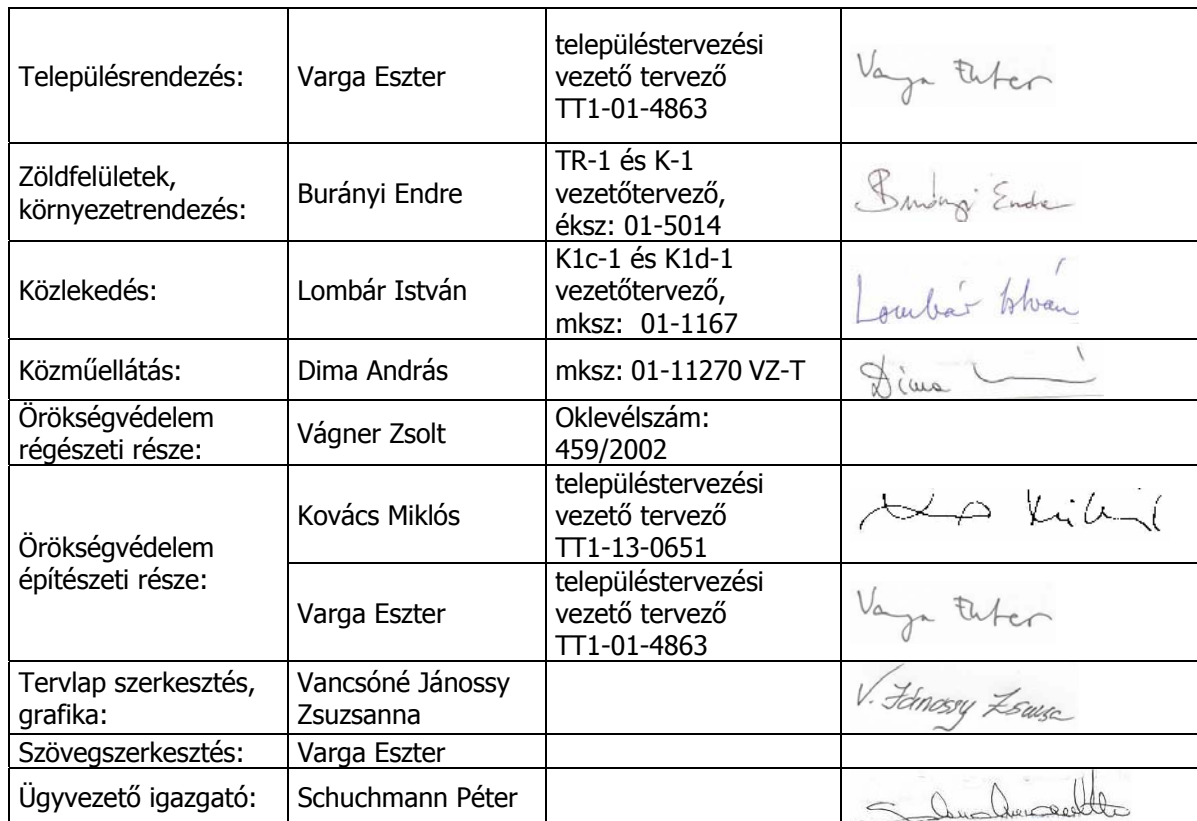 Településrendezés:
Varga Eszter
településtervezési
vezető tervező
TT1-01-4863
Varga Eszter
Zöldfelületek,
környezetrendezés:
Burányi Endre
TR-1 és K-1
vezetőtervező,
éksz: 01-5014
Burányi Endre
Közlekedés:
Lombár István
K1c-1 és K1d-1
vezetőtervező,
mksz: 01-1167
Lombár István
Közműellátás:
Dima András
mksz: 01-11270 VZ-T
Dima
Örökségvédelem
régészeti része:
Vágner Zsolt
Oklevélszám:
459/2002
Örökségvédelem
építészeti része:
Kovács Miklós
településtervezési
vezető tervező
TT1-13-0651
Varga Eszter
településtervezési
vezető tervező
TT1-01-4863
Varga Eszter
Tervlap szerkesztés,
grafika:
Vancsóné Jánossy
Zsuzsanna
V. Jánossy Zsuzsa
Szövegszerkesztés:
Varga Eszter
Ügyvezető igazgató:
Schuchmann Péter